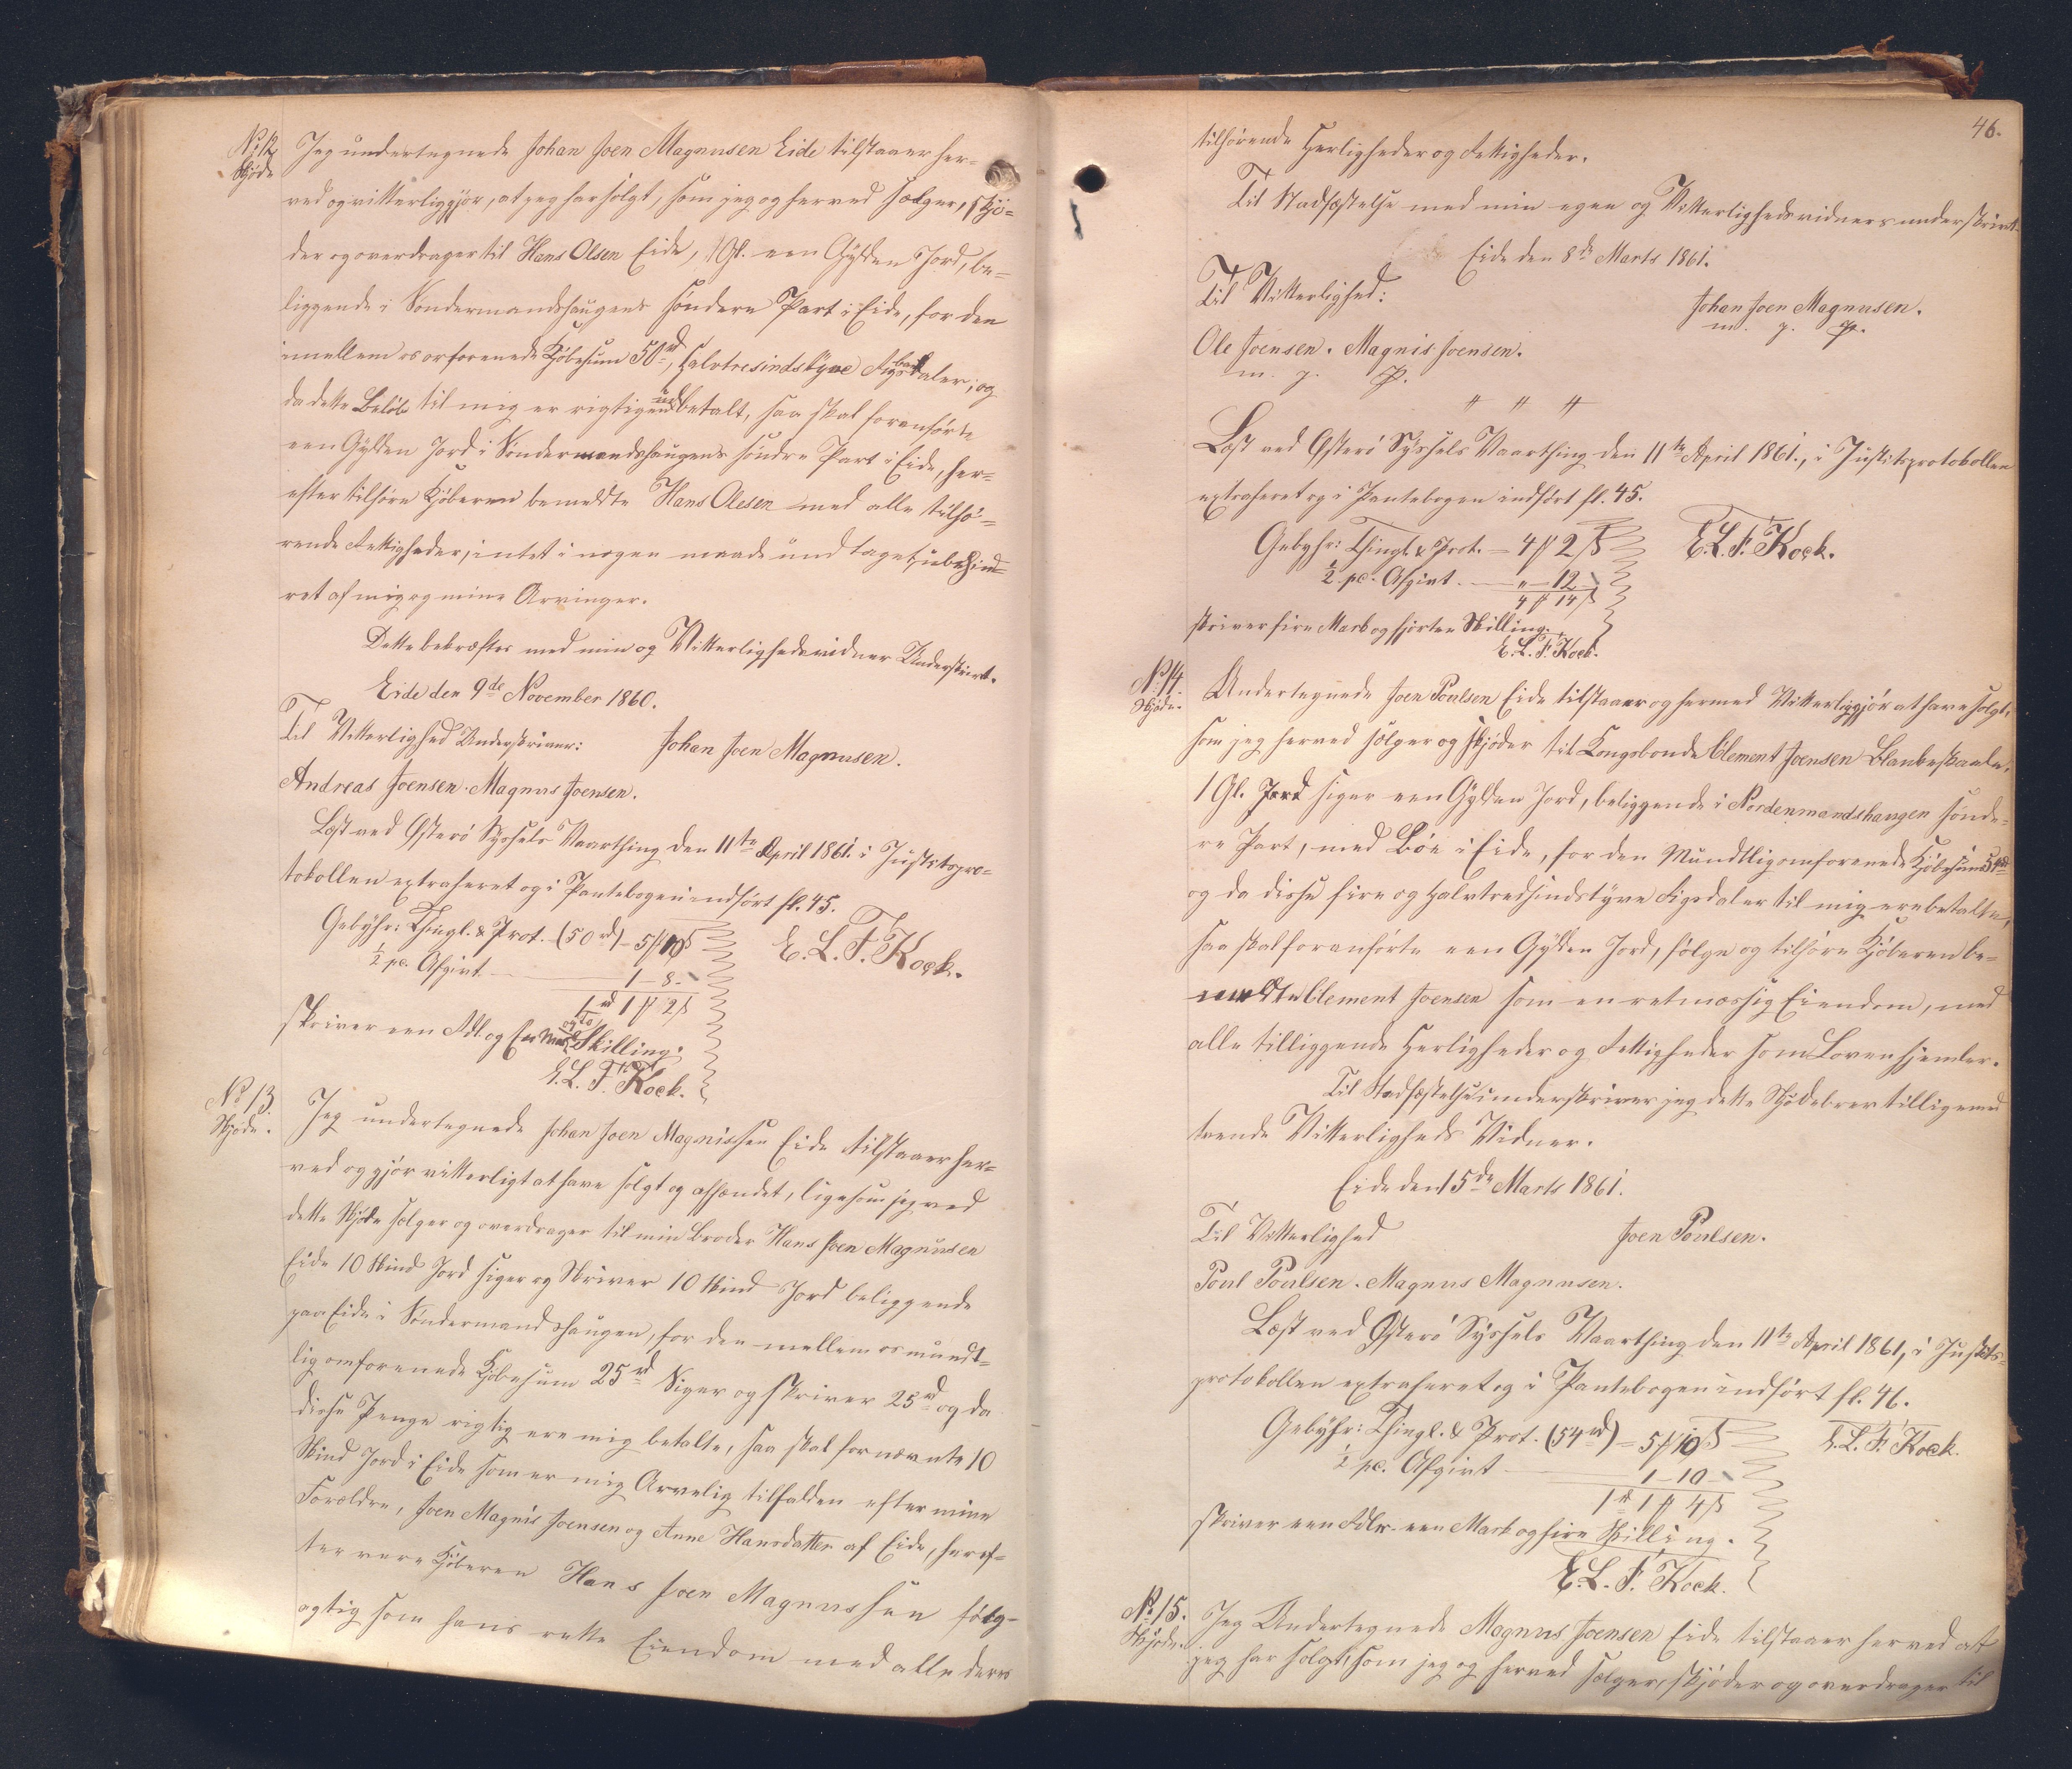 No 12.
Skjøde
Jeg undertegnede Johan Joen Magnusen Eide tilstaaer her-
ved og vitterliggjør, at jeg har solgt, som jeg og herved sælger, skjø-
der og overdrager til Hans Olsen Eide, 1 Gl. een Gylden Jord, be-
liggende i Søndermandshaugens søndere Part i Eide, for den
imellem os omforenede Kjøbesum 50 rd, halvtresindstyve Rigsbankdaler; og
da dette Beløb til mig er rigtigen udbetalt, saa skal foranførte
een Gylden Jord i Søndermandshaugens søndre Part i Eide, her-
efter tilhøre Kjøberen bemeldte Hans Olesen med alle tilhø-
rende Rettigheder, intet i nogen maade undtaget, ubehind-
ret af mig og mine Arvinger.
Dette bekræftes med min og Vitterlighedsvidner Underskrivt.
Eide den 9de November 1860.
Til Vitterlighed Underskriver: Johan Joen Magnusen.
Andreas Joensen. Magnus Joensen.
Læst ved Østerø Syssels Vaarthing den 11te April 1861. i Justitspro-
tokollen extraheret og i Pantebogen indført fl. 45.
Gebyhr: Thingl. & Prot. (50 rd) – 5 # 10 ß
E. L. F. Kock.
½ pc. Afgivt — 1 – 8 -
1 rd 1 # 2 ß
skriver een Rdl. og En Mark og to Skilling.
E. L. F. Kock.
No 13.
Skjøde.
Jeg undertegnede Johan Joen Magnissen Eide tilstaaer her-
ved og gjør vitterligt at have solgt og afhændet, ligesom jeg ved
dette Skjøde sælger og overdrager til min Broder Hans Joen Magnusen
Eide 10 Skind Jord siger og Skriver 10 Skind Jord beliggende
paa Eide i Søndermandshaugen, for den mellem os mundt-
lig omforenede Kjøbesum 25 rd Siger og skriver 25 rd og da
disse Penge rigtig ere mig betalte, saa skal fornævnte 10
Skind Jord i Eide som er mig Arvelig tilfalden efter mine
Forældre, Joen Magnis Joensen og Anne Hansdatter af Eide, heref-
ter være Kjøberen Hans Joen Magnussen følg-
agtig som hans rette Eiendom med alle deres
46.
tilhørende Herligheder og Rettigheder.
Til Stadfæstelse med min egen og Vitterlighedsvidners underskrivt.
Eide den 8de Marts 1861.
Til Vitterlighed:
Johan Joen Magnusen.
m. p. p.
Ole Joensen. Magnis Joensen.
m. p. p.
Læst ved Østerø Syssels Vaarthing den 11te April 1861., i Justitsprotokollen
extraheret og i Pantebogen indført fl. 45.
Gebyhr: Thingl. & Prot. – 4 # 2 ß
E. L. F. Kock.
½ pc. Afgivt. — " – 12 -
4 # 14 ß
skriver fire Mark og fjorten Skilling.
E. L. F. Kock.
No 14.
Skjøde.
Undertegnede Joen Poulsen Eide tilstaaer og hermed Vitterliggjør at have solgt,
som jeg herved sælger og skjøder til Kongsbonde Clement Joensen Blankeskaale,
1 Gl. Jord siger een Gylden Jord, beliggende i Nordenmandshaugen sønde-
re Part, med Bøe i Eide, for den Mundtlig omforenede Kjøbesum 54 rd
og da disse fire og halvtredsindstyve Rigsdaler til mig ere betalte,
saa skal foranførte een Gylden Jord, følge og tilhøre Kjøberen be-
meldte Clement Joensen som en retmæssig Eiendom, med
alle tilliggende Herligheder og Rettigheder som Loven hjemler.
Til Stadfæstelse underskriver jeg dette Skjødebrev tilligemed
tvende Vitterligheds Vidner.
Eide den 15de Marts 1861.
Til Vitterlighed
Joen Poulsen.
Poul Poulsen. Magnus Magnusen.
Læst ved Østerø Syssels Vaarthing den 11te April 1861, i Justits-
protokollen extraheret og i Pantebogen indført fl. 46.
Gebyhr: Thingl. & Prot. (54 rd) – 5 # 10 ß
E. L. F. Kock.
½ pc. Afgivt — 1 – 10 -
1 rd 1 # 4 ß
skriver een Rdlr. een Mark og fire Skilling.
E. L. F. Kock.
No 15.
Skjøde.
Jeg Undertegnede Magnus Joensen Eide tilstaaer herved at
jeg har solgt, som jeg og herved sælger, skjøder og overdrager til